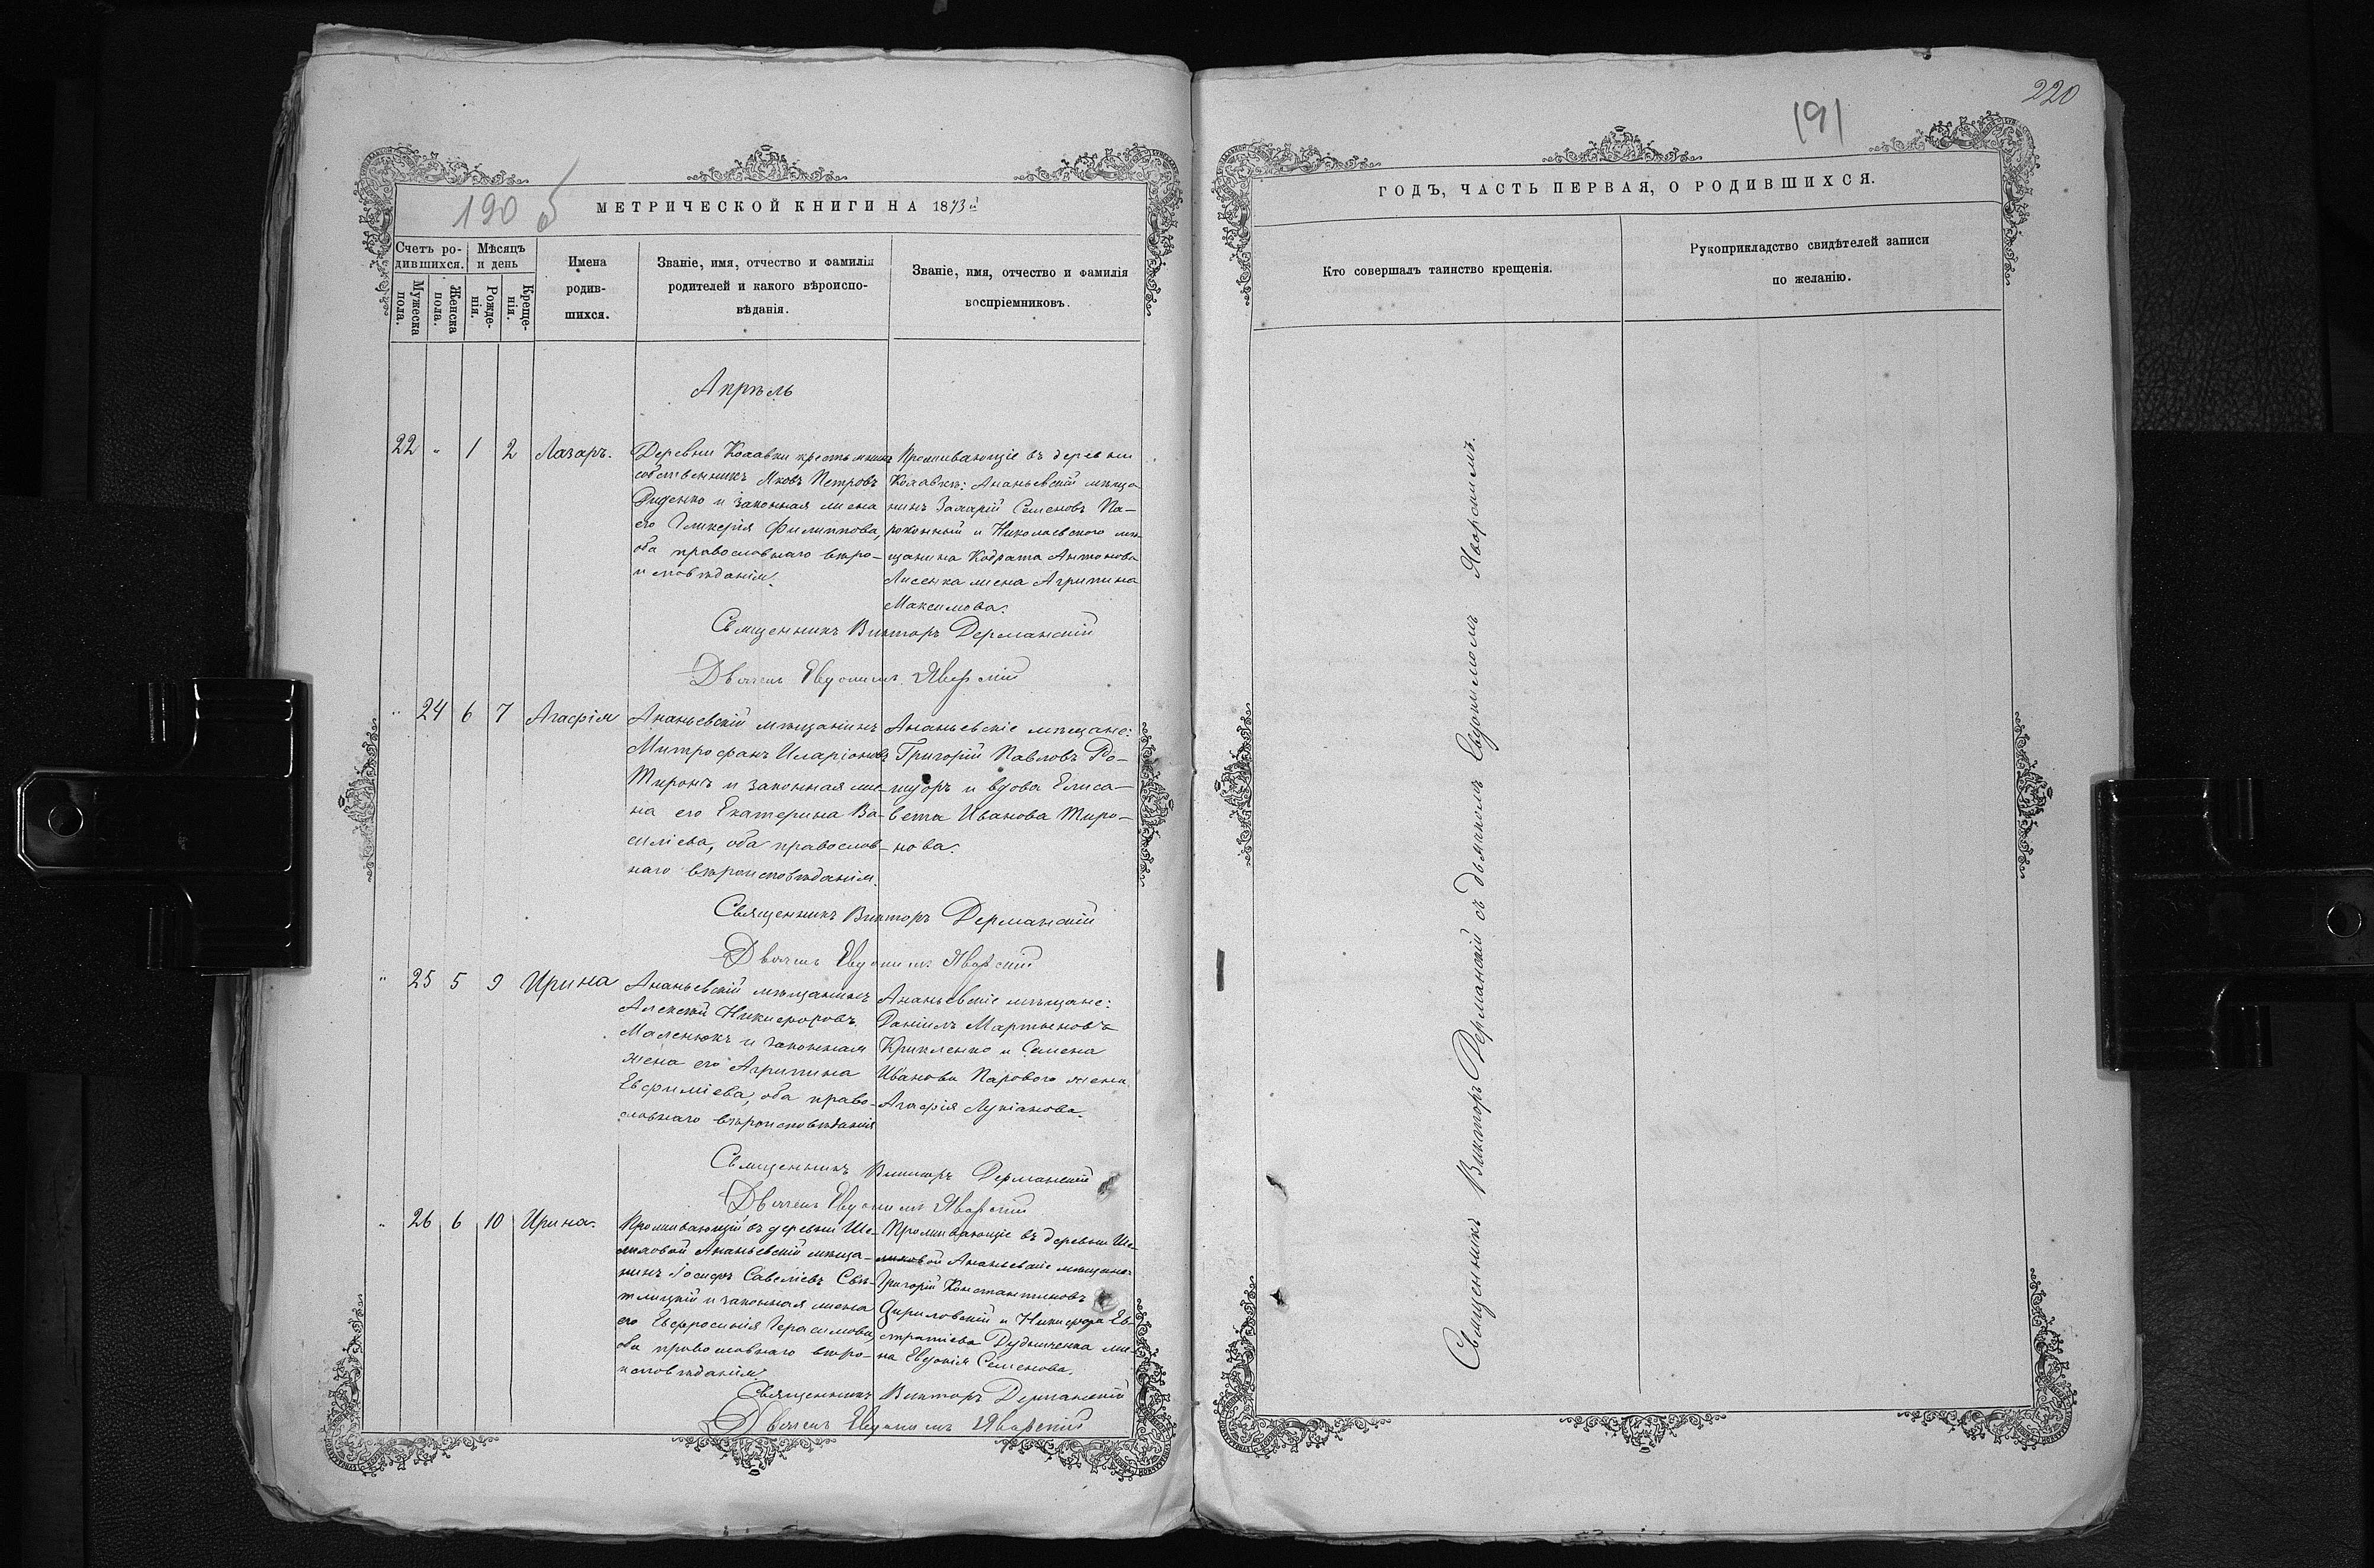 190 об
МЕТРИЧЕСКОЙ КНИГИ НА 1873й
Счетъ ро-
дившихся.
Мѣсяцъ
и день
Мужеска
пола.
Женска
пола.
Рожде-
нія.
Креще-
нія.
Имена
родив-
шихся.
Званіе, имя, отчество и фамилія
родителей и какого вѣроиспо-
вѣданія.
Званіе, имя, отчество и фамилія
воспріемниковъ.
Апрѣль
22 „ 1 2 Лазарь.
Деревни Коаавки крестьянинъ
собственникъ Яковъ Петровъ
Диденко и законная жена
его Гликерія Филиппова,
оба православнаго вѣро-
исповѣданія.
Проживающіе въ деревни
Ананьевскій мѣща
нинъ Захарій Семеновъ Па-
и Николаевского мѣ-
щанина Кодрата Антонова
Лисенка жена Агрипина
Максимова.
Священникъ Викторъ Дерманскій
Дьячекъ Евдокимъ Яворскій
„ 24 6 7 Агафія
Ананьевскій мѣщанинъ
Митрофанъ Иларіоновъ
Миронъ и законная же
на его Екатерина Ва-
силіева, оба православ-
наго вѣроисповѣданія.
Ананьевскіе мѣщане:
Григорій Павловъ
и вдова Елиса-
вета Иванова Миро-
нова.
Священникъ Викторъ Дерманскій
Дьячекъ Евдокимъ Яворскій
„ 25 5 9 Ирина
Ананьевскій мѣщанинъ
Алексѣй Никифоровъ
Маленюкъ и законная
жена его Агрипина
Евфиміева, оба право-
славнаго вѣроисповѣданія
Ананьевскіе мѣщане:
Даніилъ Мартыновъ
Крикленко и Семена
Иванова Парового жена
Агафія Лукіанова.
Священникъ Викторъ Дерманскій
Дьячекъ Евдокимъ Яворскій
„ 26 6 10 Ирина.
Проживающій въ деревни Ше-
Ананьевскій мѣща-
нинъ Іосифъ Савеліевъ Свѣ-
тлицкій и законная жена
его Евфросинія Герасимова,
оба православнаго вѣро-
исповѣданія.
Проживающіе въ деревни Ше-
Ананьевскіе мѣщане
Григорій Константиновъ
и Никифора Ев-
стратіева Дудниченка же-
на Евдокія Семенова.
Священникъ Викторъ Дерманскій
Дьячекъ Евдокимъ Яворскій
220
191
ГОДЪ, ЧАСТЬ ПЕРВАЯ, О РОДИВШИХСЯ.
Кто совершалъ таинство крещенія.
Рукоприкладство свидѣтелей записи
по желанію.
Священникъ Викторъ Дерманскій съ дьячкомъ Евдокимомъ Яворскимъ.